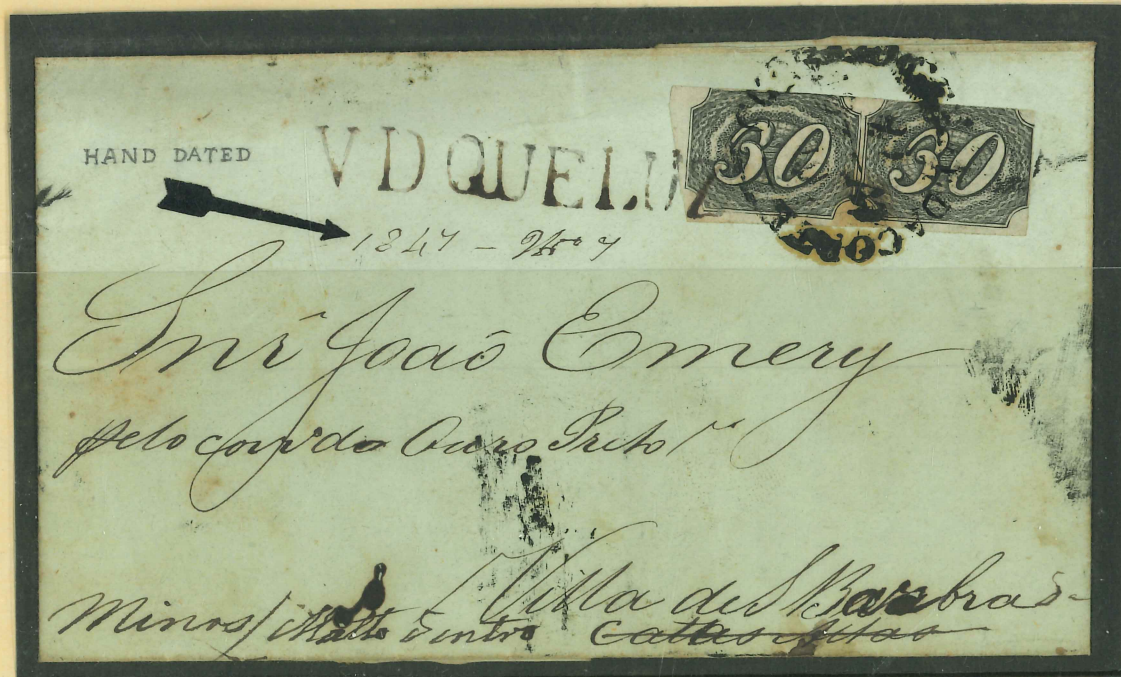 HAND DATED
V D QUELUZ
60 60
1847 - 9bro 7
Snr João Emery
pelo corro do Ouro Preto
Villa de S Barbra
Minas / Matto Dentro Cattas Altas